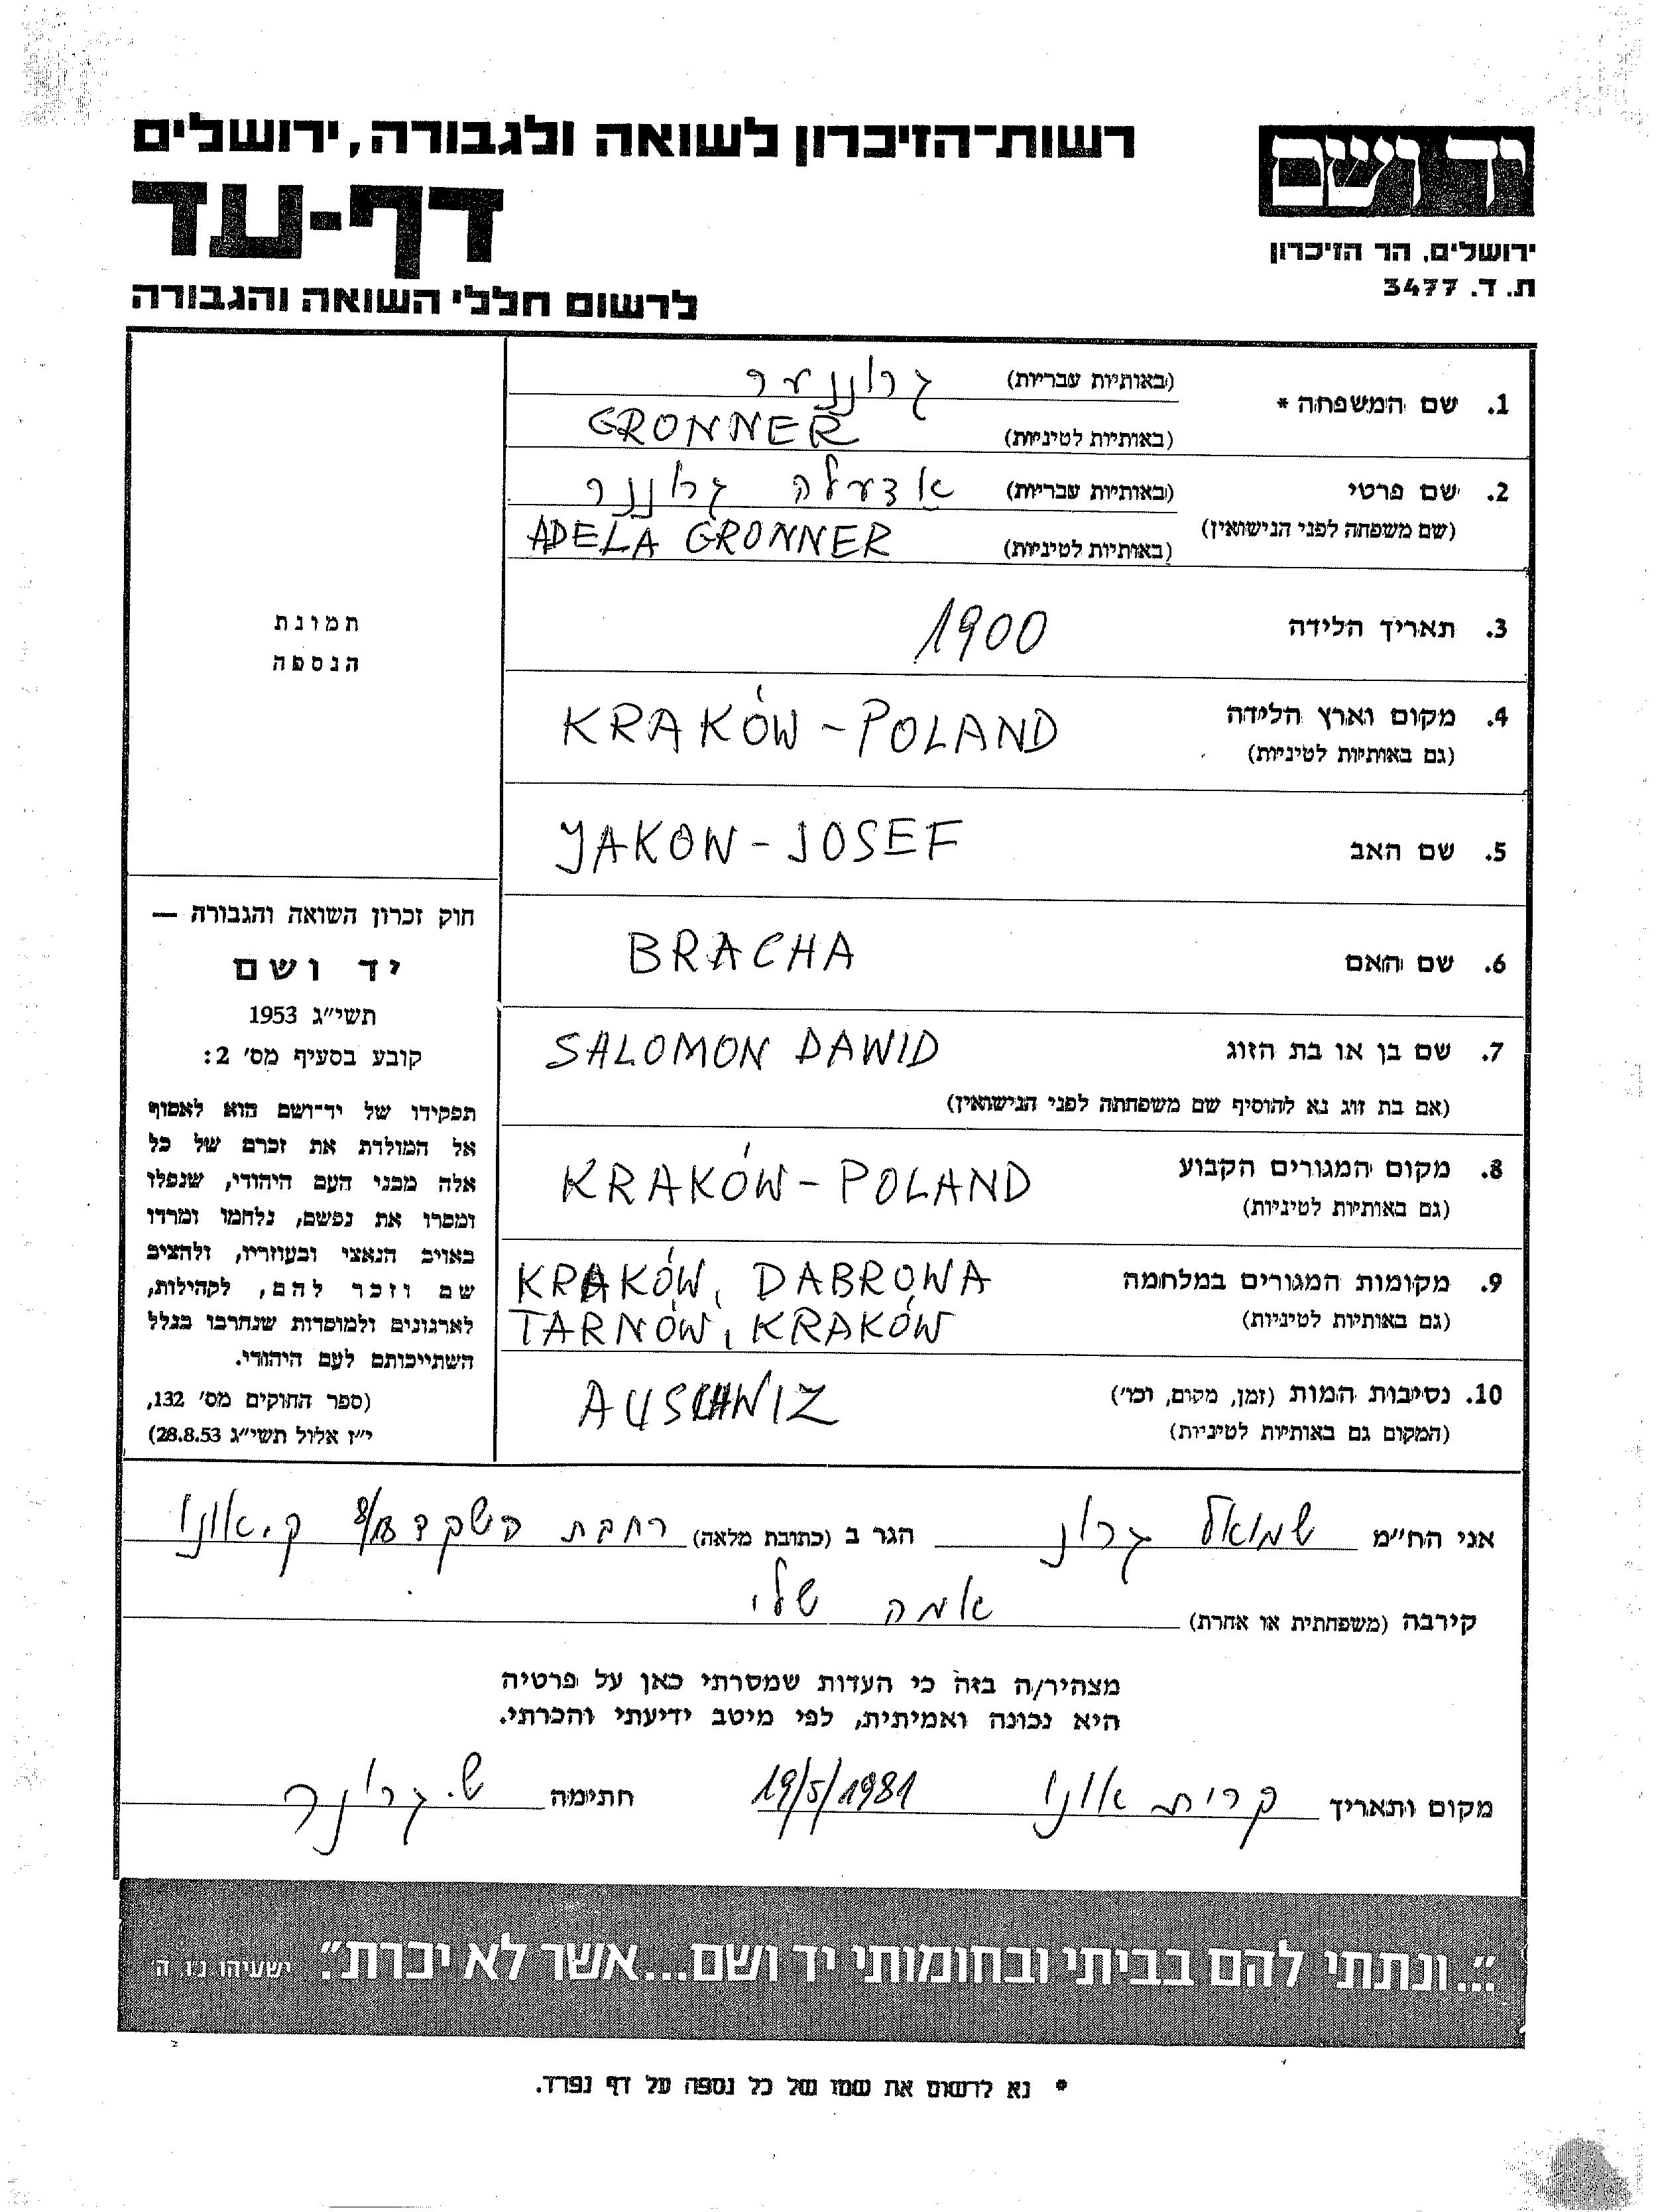 רשות־הזיכרון לשואה ולגבורה, ירושלים
דף-עד
לרשום חללי השואה והגבורה
יד ושם
ירושלים, הר הזיכרון
ת. ד. 3477
1. שם המשפחה * (באותיות עבריות) גרוננער
(באותיות לטיניות) GRONNER
2. שם פרטי (באותיות עבריות) אדעלה גרוננר
(שם משפחה לפני הנישואין) (באותיות לטיניות) ADELA GRONNER
3. תאריך הלידה 1900
4. מקום וארץ הלידה KRAKÓW - POLAND
(גם באותיות לטיניות)
5. שם האב JAKON - JOSEF
6. שם האם BRACHA
7. שם בן או בת הזוג SALOMON DAWID
(אם בת זוג נא להוסיף שם משפחתה לפני הנישואין)
8. מקום המגורים הקבוע KRAKÓW - POLAND
(גם באותיות לטיניות)
9. מקומות המגורים במלחמה KRAKÓW, DABROWA
(גם באותיות לטיניות) TARNÓW, KRAKÓW
10. נסיבות המות (זמן, מקום, וכו') AUSCHWIZ
(המקום גם באותיות לטיניות)
תמונת
הנספה
חוק זכרון השואה והגבורה —
יד ושם
תשי"ג 1953
קובע בסעיף מס' 2:
תפקידו של יד־ושם הוא לאסוף
אל המולדת את זכרם של כל
אלה מבני העם היהודי, שנפלו
ומסרו את נפשם, נלחמו ומרדו
באויב הנאצי ובעוזריו, ולהציב
שם וזכר להם, לקהילות,
לארגונים ולמוסדות שנחרבו בגלל
השתייכותם לעם היהודי.
(ספר החוקים מס' 132,
י"ז אלול תשי"ג 28.8.53)
אני הח"מ שמואל גרונ הגר ב (כתובת מלאה) רחבת השקד 8/ ק. אונו
קירבה (משפחתית או אחרת) אמה שלי
מצהיר/ה בזה כי העדות שמסרתי כאן על פרטיה
היא נכונה ואמיתית, לפי מיטב ידיעתי והכרתי.
מקום ותאריך קרית אונו 19/5/1981 חתימה ש. גרונר
"...ונתתי להם בביתי ובחומותי יד ושם...אשר לא יכרת". ישעיהו נ"ו, ה'
* נא לרשום את שמו של כל נספה על דף נפרד.